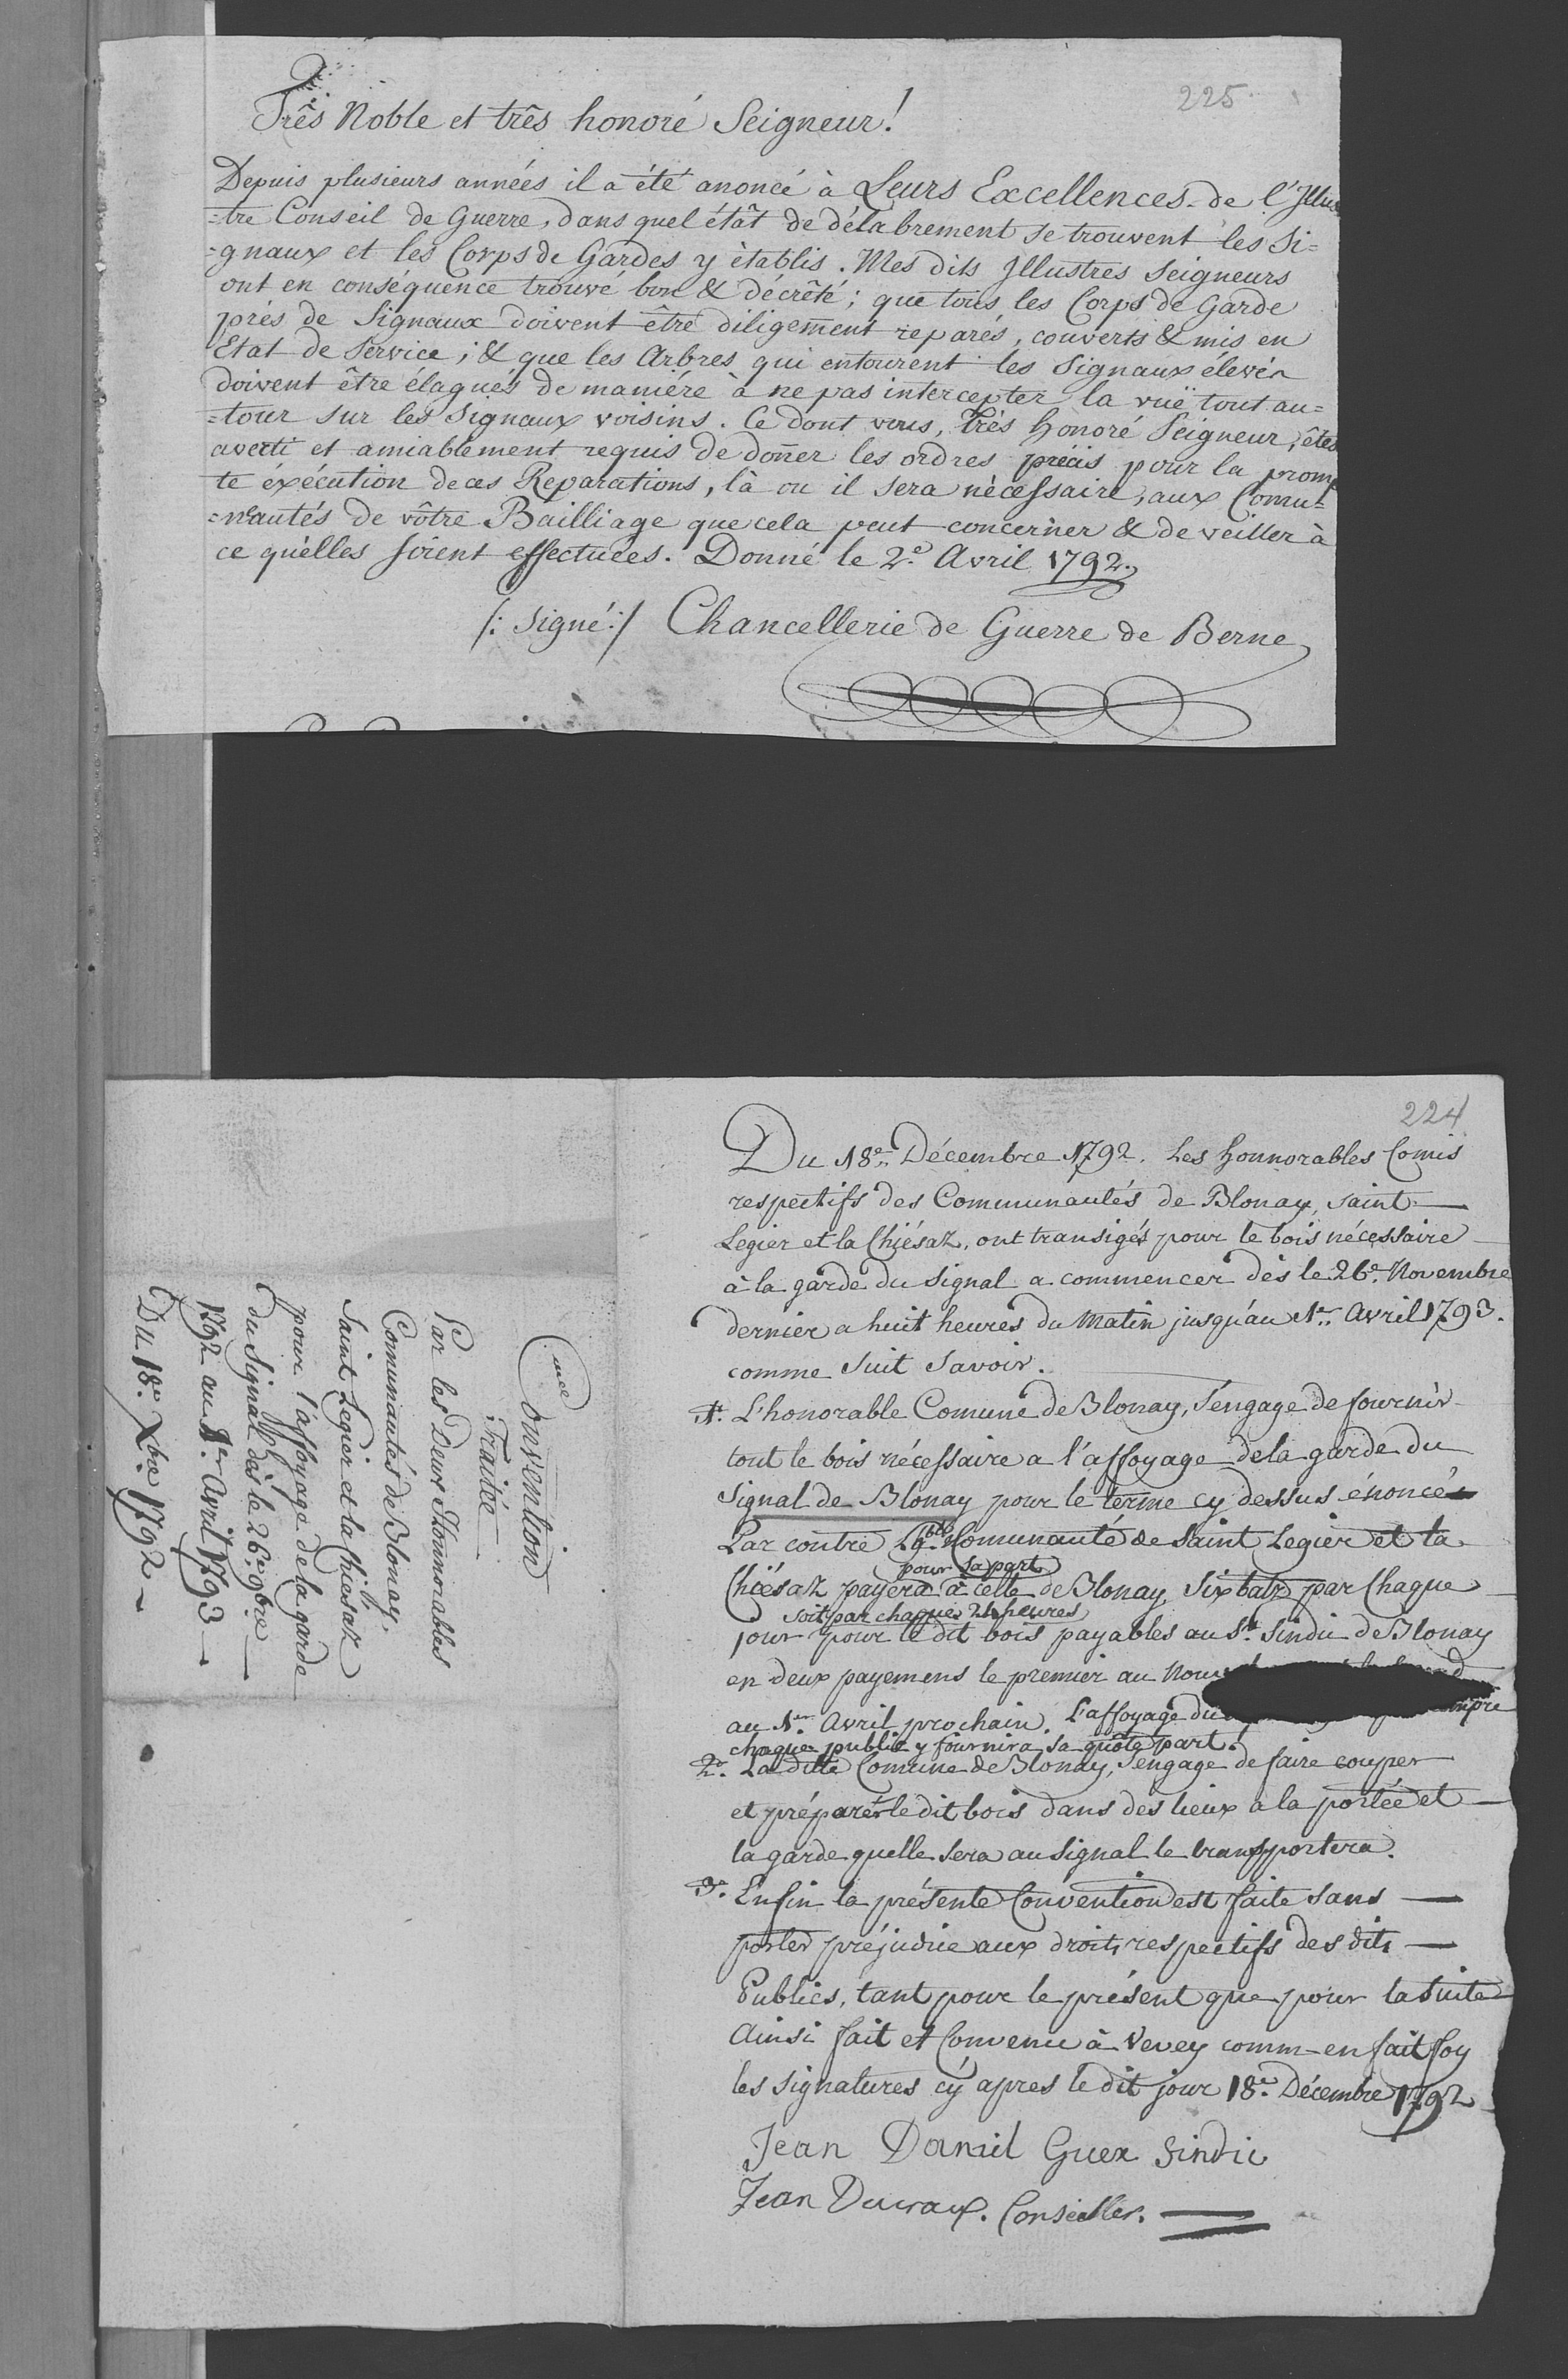 225
Très Noble et très honoré Seigneur!
Depuis plusieurs années il a été anoncé à Leurs Excellences de l'Illus
=tre Conseil de Guerre, dans quel étât de délabrement se trouvent les Si=
=gnaux et les Corps de Gardes y ètablis. Mes dits Illustres Seigneurs
ont en conséquence trouvé bon & décrêté; que tous les Corps de Garde
prés de Signaux doivent être diligement reparés, couverts & mis en
Etat de Service; & que les Arbres qui entourent les Signaux élevés
doivent être élagués de maniére à ne pas intercepter la vuë tout au=
=tour sur les Signaux voisins. Ce dont vous, Très Honoré Seigneur, êtes
averti et amiablement requis de doñer les ordres précis pour la promp
te éxécution de ces Reparations, là ou il sera nècessaire, aux Comu=
=nautés de vôtre Bailliage que cela peut concerner & de veiller à
ce qu'elles soient effectuées. Donné le 2e Avril 1792.
/: Signé :/ Chancellerie de Guerre de Berne
224
Du 18e Décembre 1792. Les honnorables Comis
respectifs des Communautés de Blonay, Saint
Legier et la Chiésaz, ont transigés pour le bois nécessaire
à la garde du Signal a commencer dès le 26e Novembre
dernier a huit heures du Matin jusqu'au 1er Avril 1793.
comme Suit Savoir.
1° L'honorable Comune de Blonay, s'engage de fournir
tout le bois nécessaire a l'affoyage de la garde du
Signal de Blonay pour le terme cy dessus énoncé
Par contre l'hble Comunauté de Saint Legier et la
pour sa part
Chiésaz payera à celle de Blonay, Six batz par Chaque
soit par chaque 24 heures
jour pour le dit bois payables au Sr Sindic de Blonay
en deux payemens le premier au
au 1er Avril prochain. L'affoyage du
chaque public y fournira sa quôte part.
2° La ditte Comune de Blonay, s'engage de faire couper
et préparér le dit bois dans des lieux a la portée et
la garde quelle sera au Signal le transportera.
3° Enfin la présente Convention est faite sans
porter préjudice aux droits respectifs des dits
Publics, tant pour le présent que pour la Suite
Ainsi fait et Convenu à Vevey comm en fait foy
les signatures cy apres le dit jour 18e Décembre 1792
Jean Daniel Guex Sindic
Jean Ducraux. Conseiller.
Convention
Traitée
Par les Deux Honnorables
Comunautés de Blonay,
Saint Legier et la Chiesaz
pour l'affoyage de la garde
du Signal dés le 26e 9bre
1792 au 1er Avril 1793
Du 18e Xbre 1792